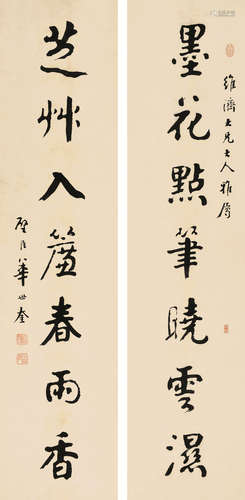 維濟大兄大人雅屬
墨花點筆曉雲濕
芝艸入簾春雨香
華世奎